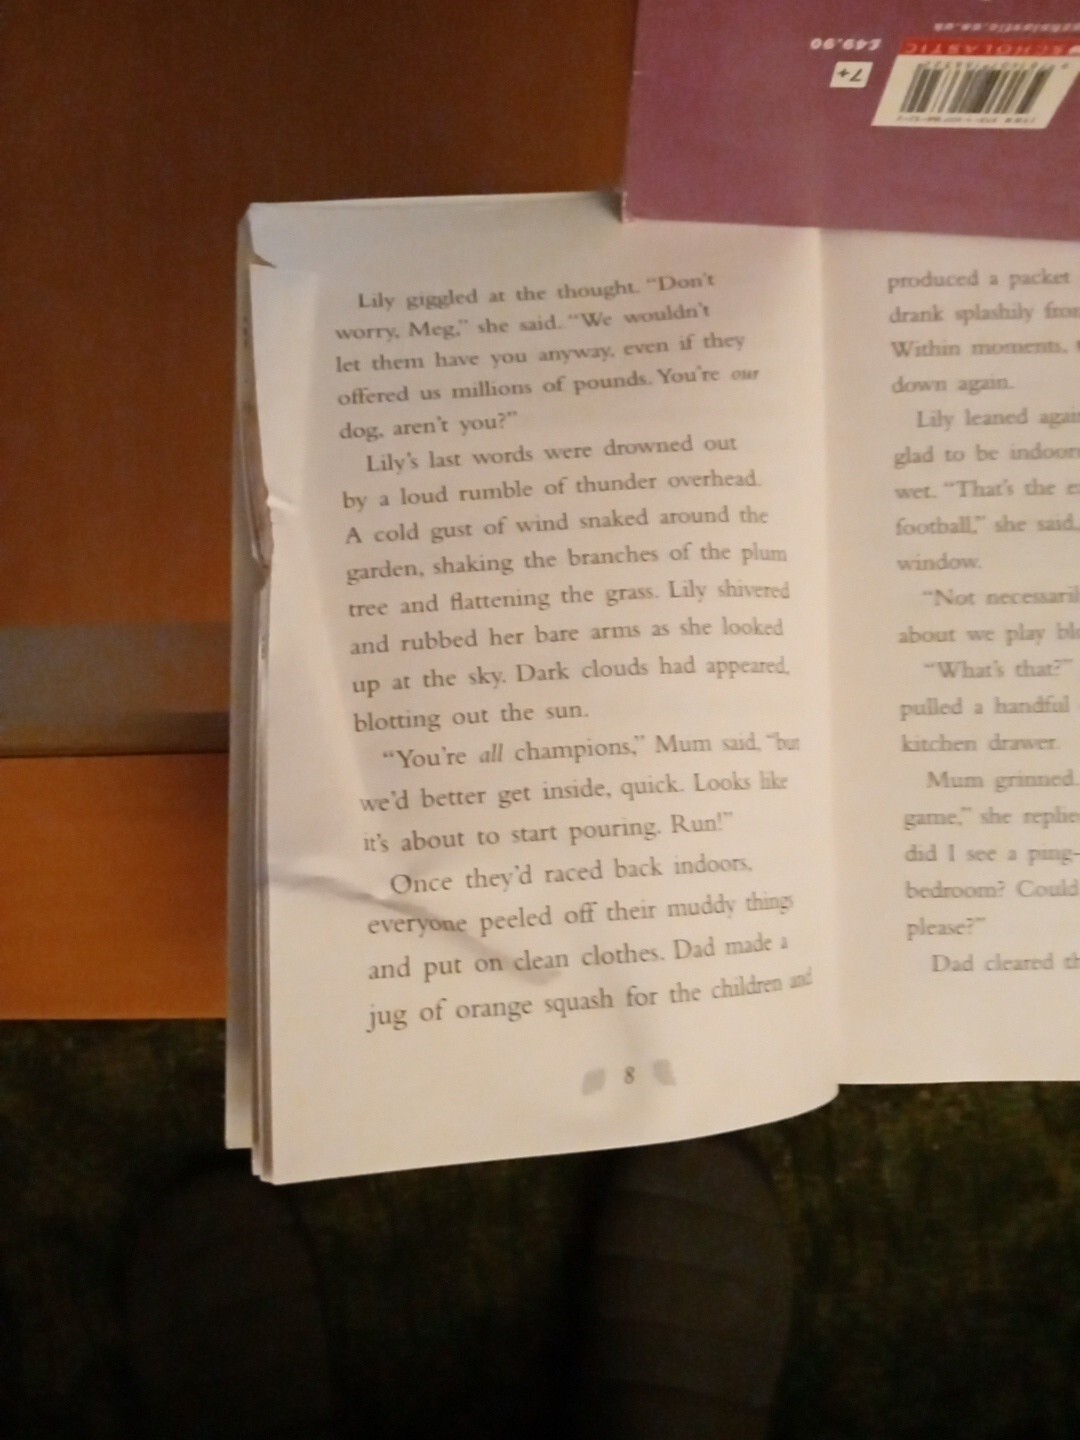 £49.90
7+
SCHOLASTIC
Lily giggled at the thought. “Don’t
worry, Meg,” she said. “We wouldn’t
let them have you anyway, even if they
offered us millions of pounds. You’re our
dog, aren’t you?”
Lily’s last words were drowned out
by a loud rumble of thunder overhead.
A cold gust of wind snaked around the
garden, shaking the branches of the plum
tree and flattening the grass. Lily shivered
and rubbed her bare arms as she looked
up at the sky. Dark clouds had appeared,
blotting out the sun.
“You’re all champions,” Mum said, “but
we’d better get inside, quick. Looks like
it’s about to start pouring. Run!”
Once they’d raced back indoors,
everyone peeled off their muddy things
and put on clean clothes. Dad made a
jug of orange squash for the children and
8
produced a packet
drank splashily
Within moments,
down again.
Lily leaned
glad to be
wet. “That’s the
football,” she said,
window.
“Not
about we play
“What’s that?”
pulled a handful
kitchen drawer.
Mum grinned.
game,” she
did I see a ping-
bedroom? Could
please?”
Dad cleared